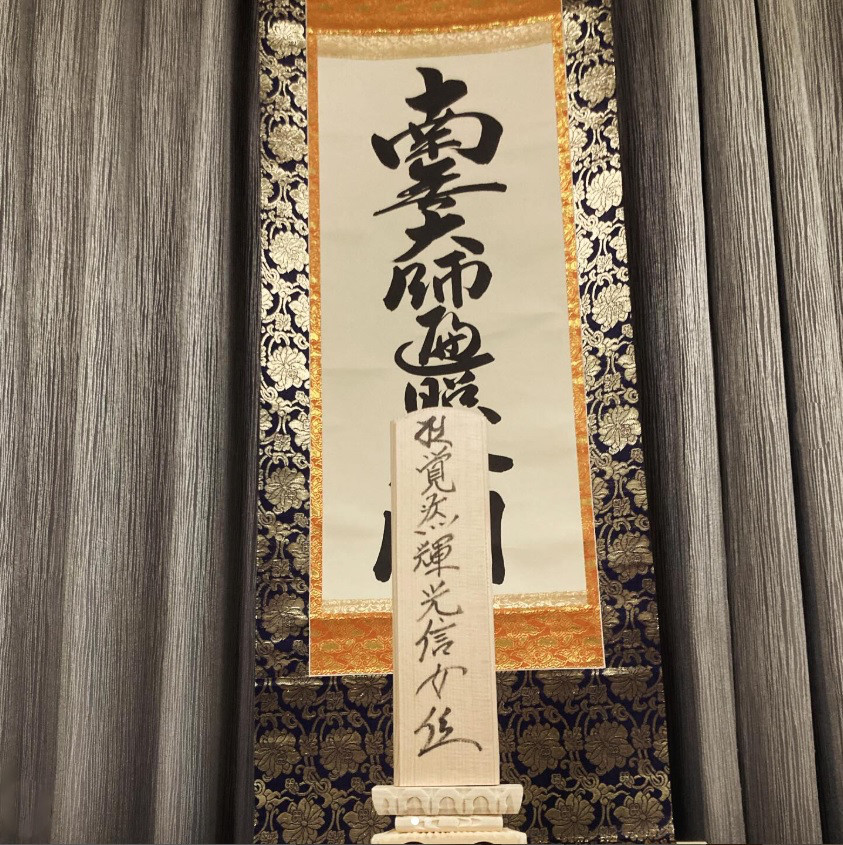 南無大師遍照金剛
覚輝光信女位